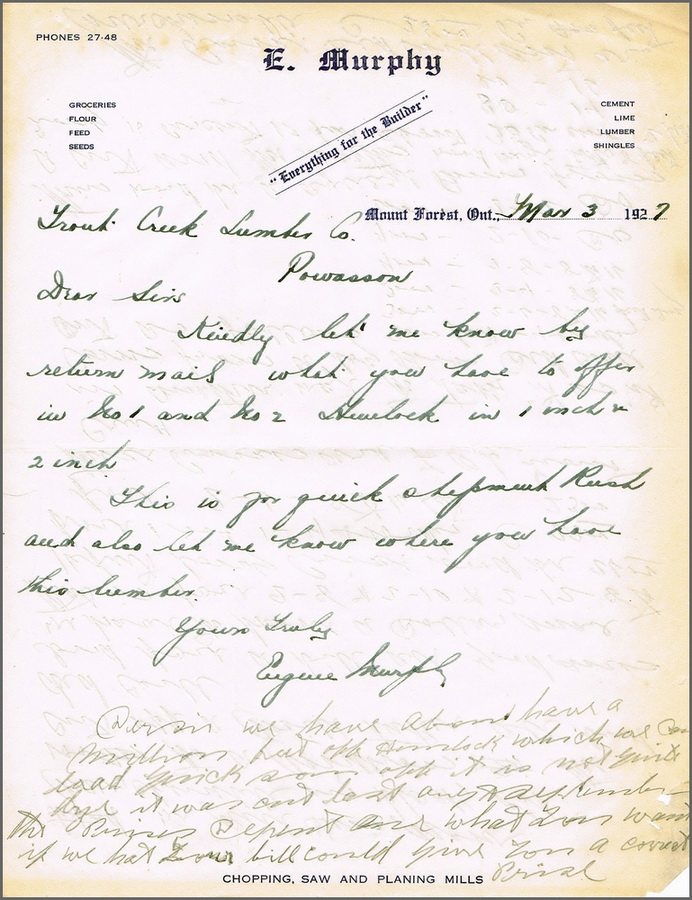 PHONES 27-48
E. Murphy
GROCERIES
FLOUR
FEED
SEEDS
"Everything for the Builder"
CEMENT
LIME
LUMBER
SHINGLES
Mount Forest, Ont., Mar 3 1927
Trout Creek Lumber Co.
Powasson
Dear Sirs
Kindly let me know by
return mail what you have to offer
in No 1 and No 2 Hemlock in 1 inch &
2 inch
This is for quick shipment Rush
and also let me know where you have
this lumber.
Yours Truly
Eugene Murphy
we have about have a
million feet off Hemlock which we can
load quick som off it is not quite
drye it was cut last august september
the Prises Depent one what You want
if we hat Your bill could give You a corect
Prise
CHOPPING, SAW AND PLANING MILLS